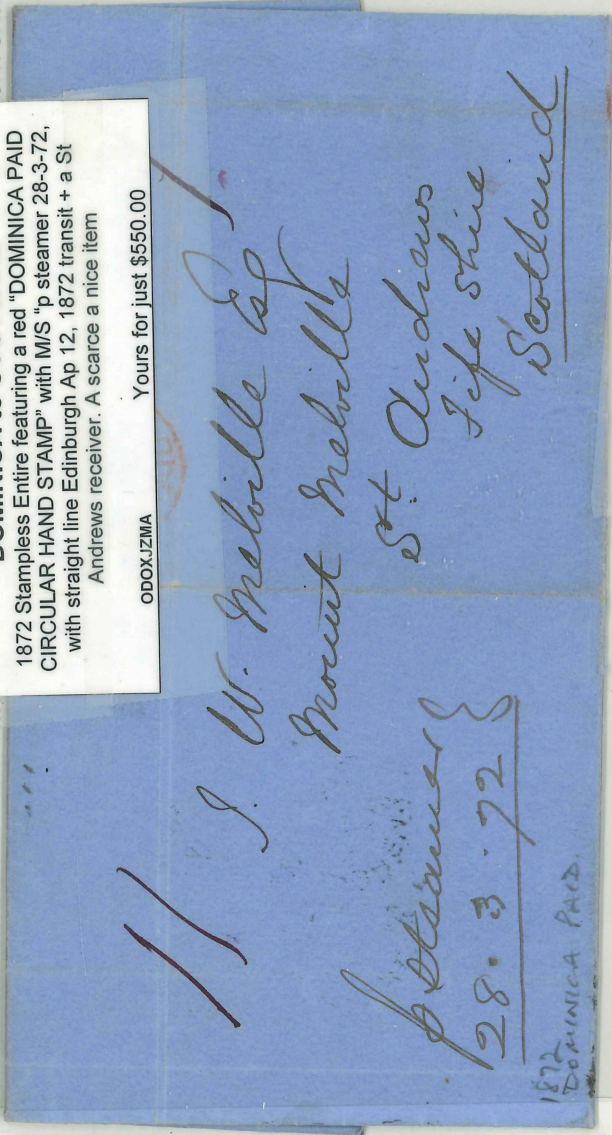 1872 Stampless Entire featuring a red "DOMINICA PAID
CIRCULAR HAND STAMP" with M/S "p steamer 28-3-72,
with straight line Edinburgh Ap 12, 1872 transit + a St
Andrews receiver. A scarce a nice item
ODOXJZMA Yours for just $550.00
J. W. Melville Esq
Mount Melville
St. Andrews
Fife Shire
Scotland
p Steamer
28.3.72
1872
DOMINICA PAID